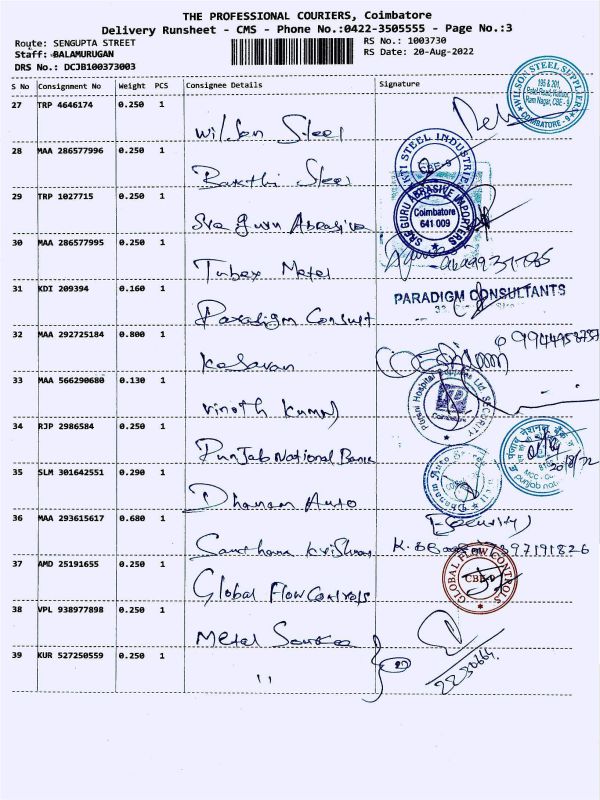 THE PROFESSIONAL COURIERS, Coimbatore
Delivery Runsheet - CMS - Phone No.:0422-3505555 - Page No.:3
Route: SENGUPTA STREET
RS No.: 1003730
Staff: BALAMURUGAN
RS Date: 20-Aug-2022
DRS No.: DCJB100373003
S No Consignment No Weight PCS Consignee Details Signature
27 TRP 4646174 0.250 1
Wilson Steel
WILSON STEEL
Ram Nagar, CBE - 9
COIMBATORE - 9
28 MAA 286577996 0.250 1
Bakthi Steel
STEEL INDUSTRIES
CBE-9
29 TRP 1027715 0.250 1
Sre guru Abrasive
SREE GURU ABRASIVE IMPORTERS
Coimbatore
641 009
30 MAA 286577995 0.250 1
Tubex Metal
31 KDI 209394 0.160 1
Paradigm Consult
PARADIGM CONSULTANTS
32 MAA 292725184 0.800 1
Kesavan
33 MAA 566290680 0.130 1
Vinoth Kumar
Hospital
Ltd SECURITY
Coimbatore
34 RJP 2986584 0.250 1
Punjab National Bank
पंजाब नैशनल बैंक
punjab nat
35 SLM 301642551 0.290 1
Dhanam Auto
Dhanam Auto
36 MAA 293615617 0.680 1
Santhana Krishnan
(Security)
37 AMD 25191655 0.250 1
Global Flow Controls
GLOBAL FLOW CONTROLS
CBE-9
38 VPL 938977898 0.250 1
Metal Source
39 KUR 527250559 0.250 1
"